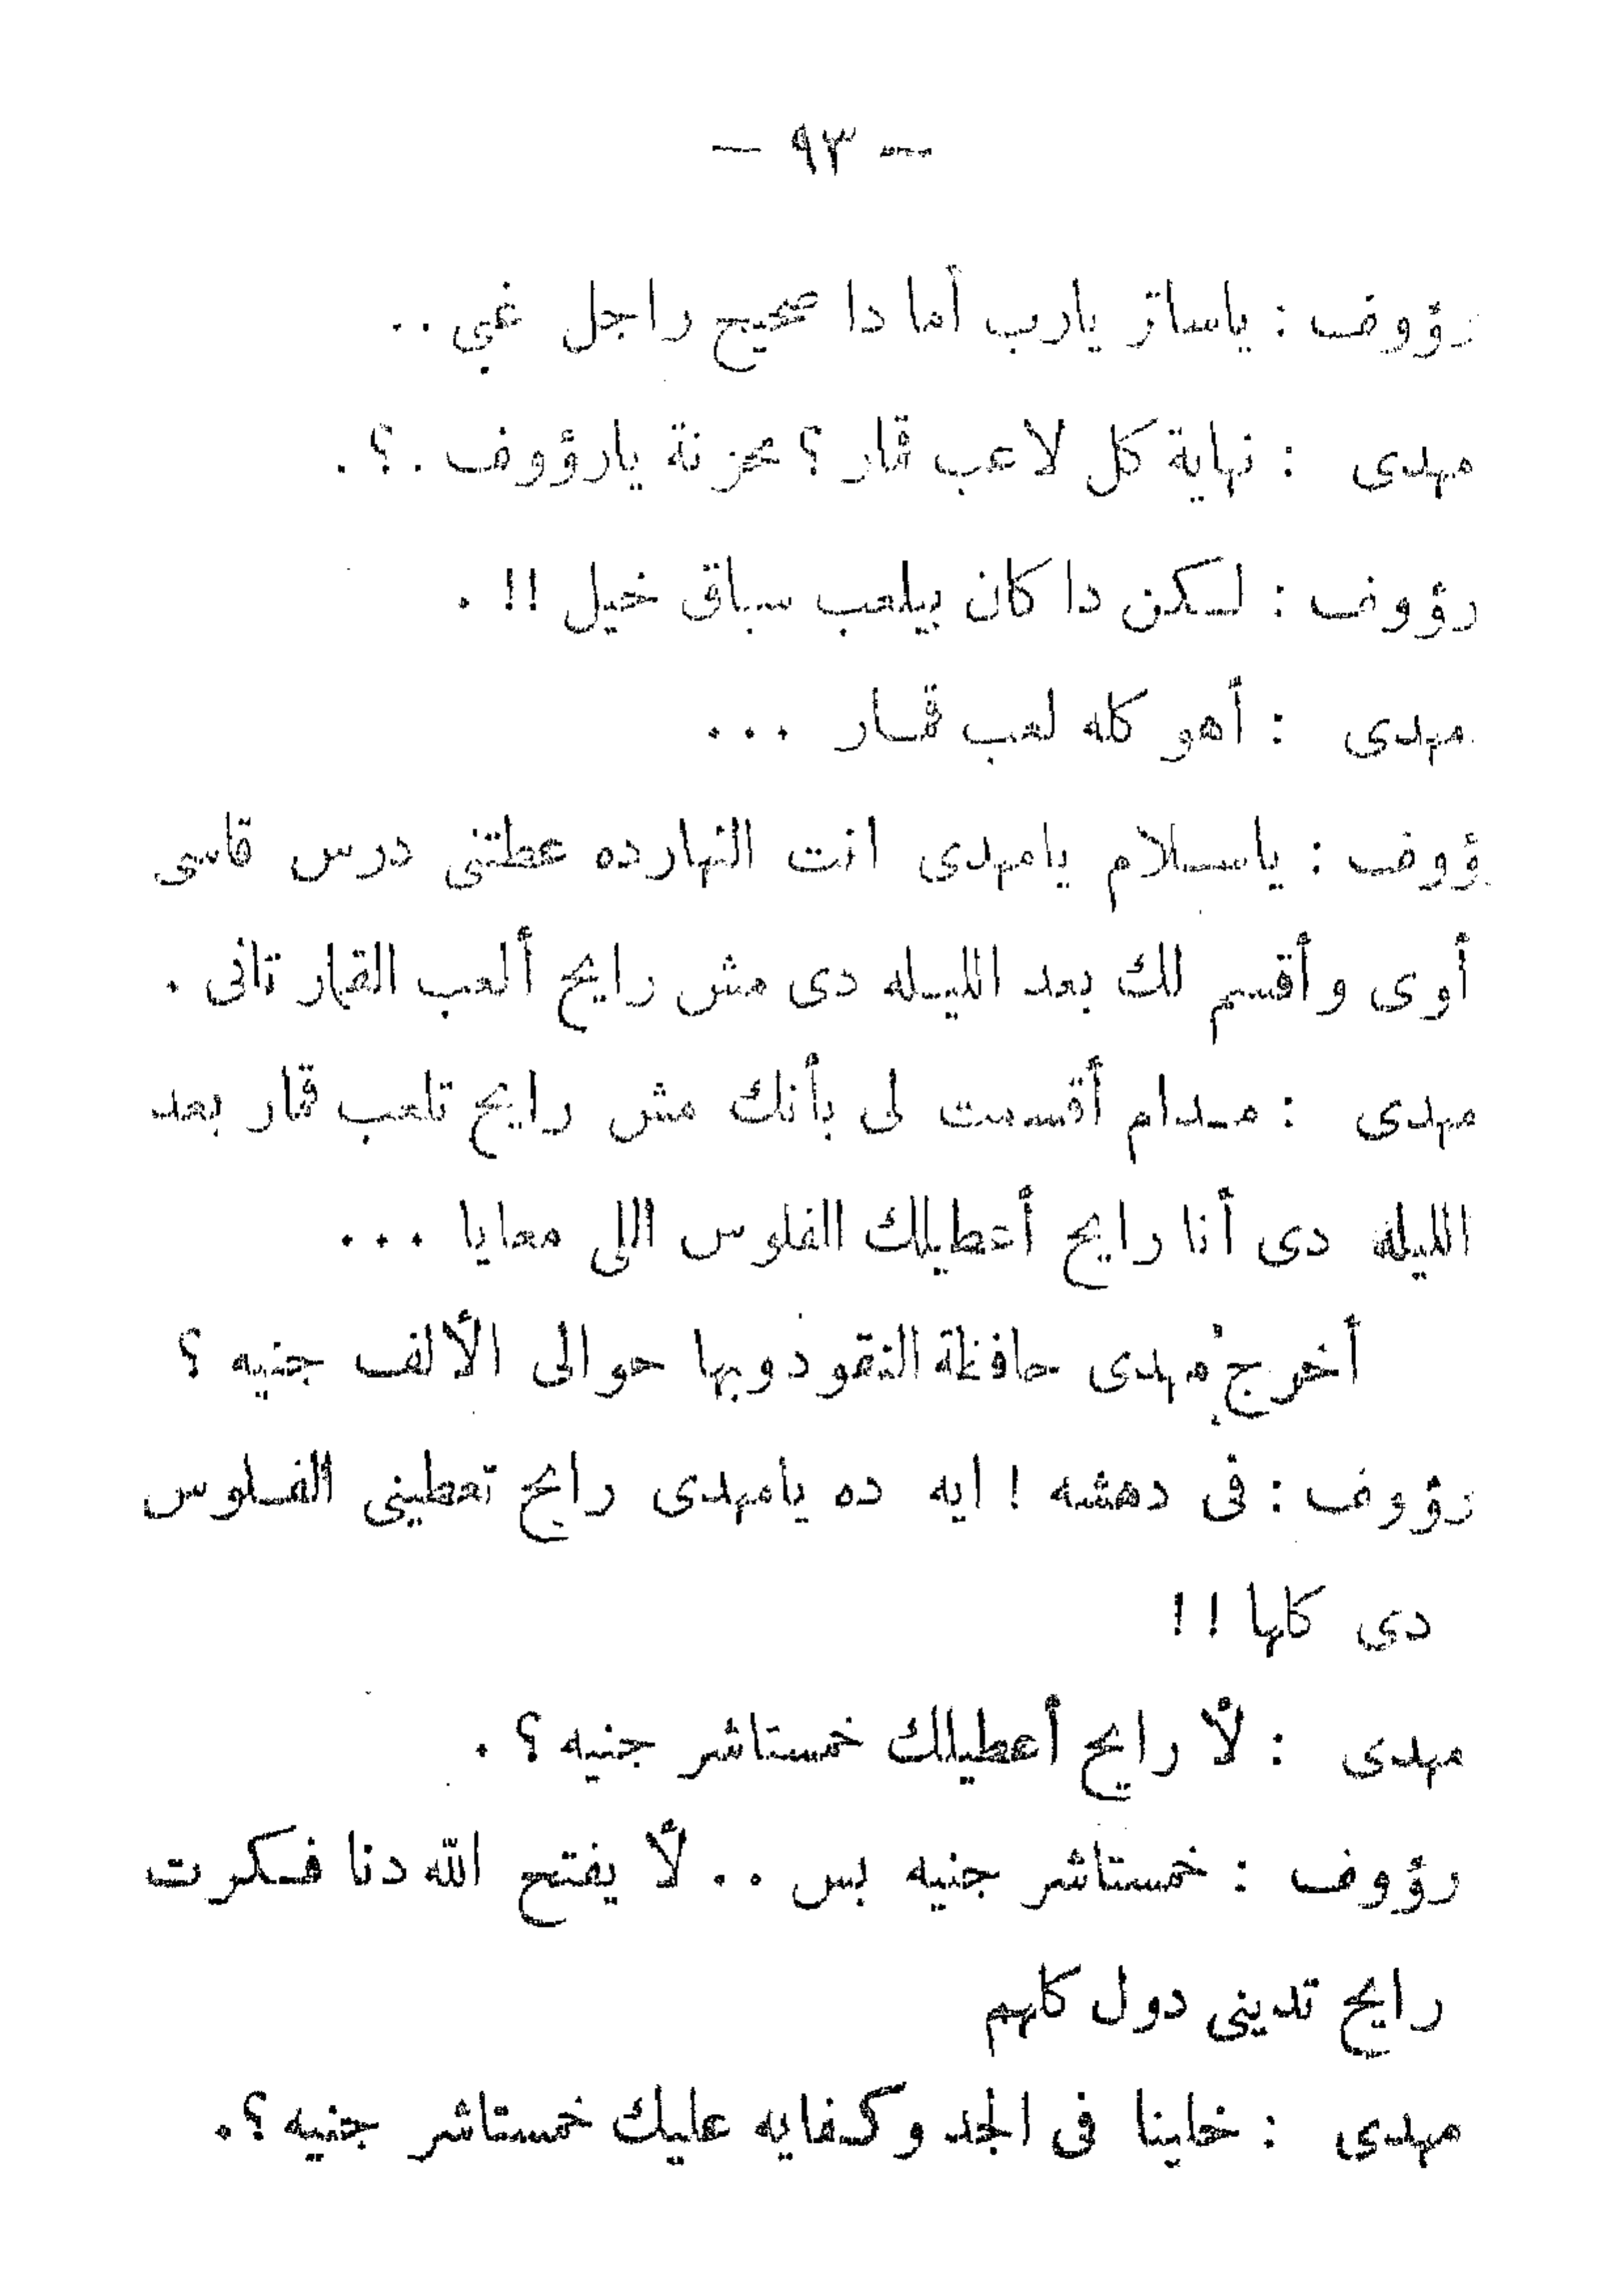 — ٩٣ —
رؤوف : ياساتر يارب أما دا صحيح راجل غبى ..
مهدى : نهاية كل لاعب قمار ؟ محزنة يارؤوف .؟.
رؤوف : لسكن دا كان بيلعب سباق خيل !! .
مهدى : أهو كله لعب قمار ...
رؤوف : ياسلام يامهدى انت النهارده عطتنى درس قاسى
أوى وأقسم لك بعد الليله دى مش رايح ألعب القمار تانى .
مهدى : مدام أقسمت لى بأنك مش رايح تلعب قمار بعد
الليله دى أنا رايح أعطيلك الفلوس اللى معايا ...
أخرج مهدى حافظة النقود وبها حوالى الألف جنيه ؟
رؤوف : فى دهشه ! ايه ده يامهدى رايح تعطينى الفلوس
دى كلها !!
مهدى : لأ رايح أعطيلك خمستاشر جنيه ؟ .
رؤوف : خمستاشر جنيه بس .. لأ يفتح الله دنا فكرت
رايح تدينى دول كلهم
مهدى : خلينا فى الجد وكفايه عليك خمستاشر جنيه ؟.